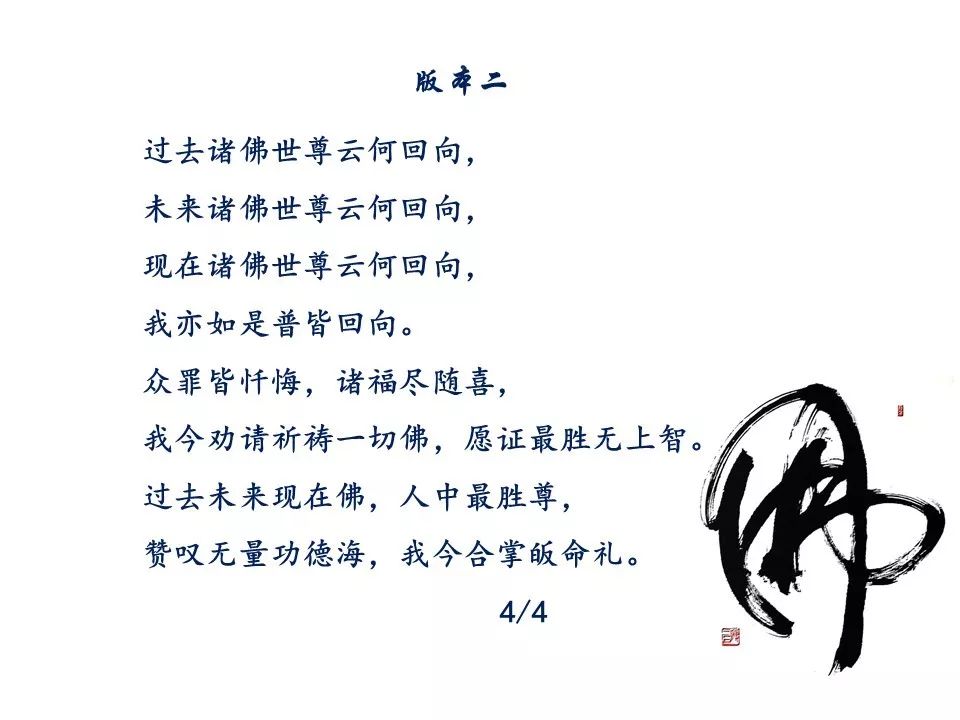 版本二
过去诸佛世尊云何回向，
未来诸佛世尊云何回向，
现在诸佛世尊云何回向，
我亦如是普皆回向。
众罪皆忏悔，诸福尽随喜，
我今劝请祈祷一切佛，愿证最胜无上智。
过去未来现在佛，人中最胜尊，
赞叹无量功德海，我今合掌皈命礼。
4/4
佛